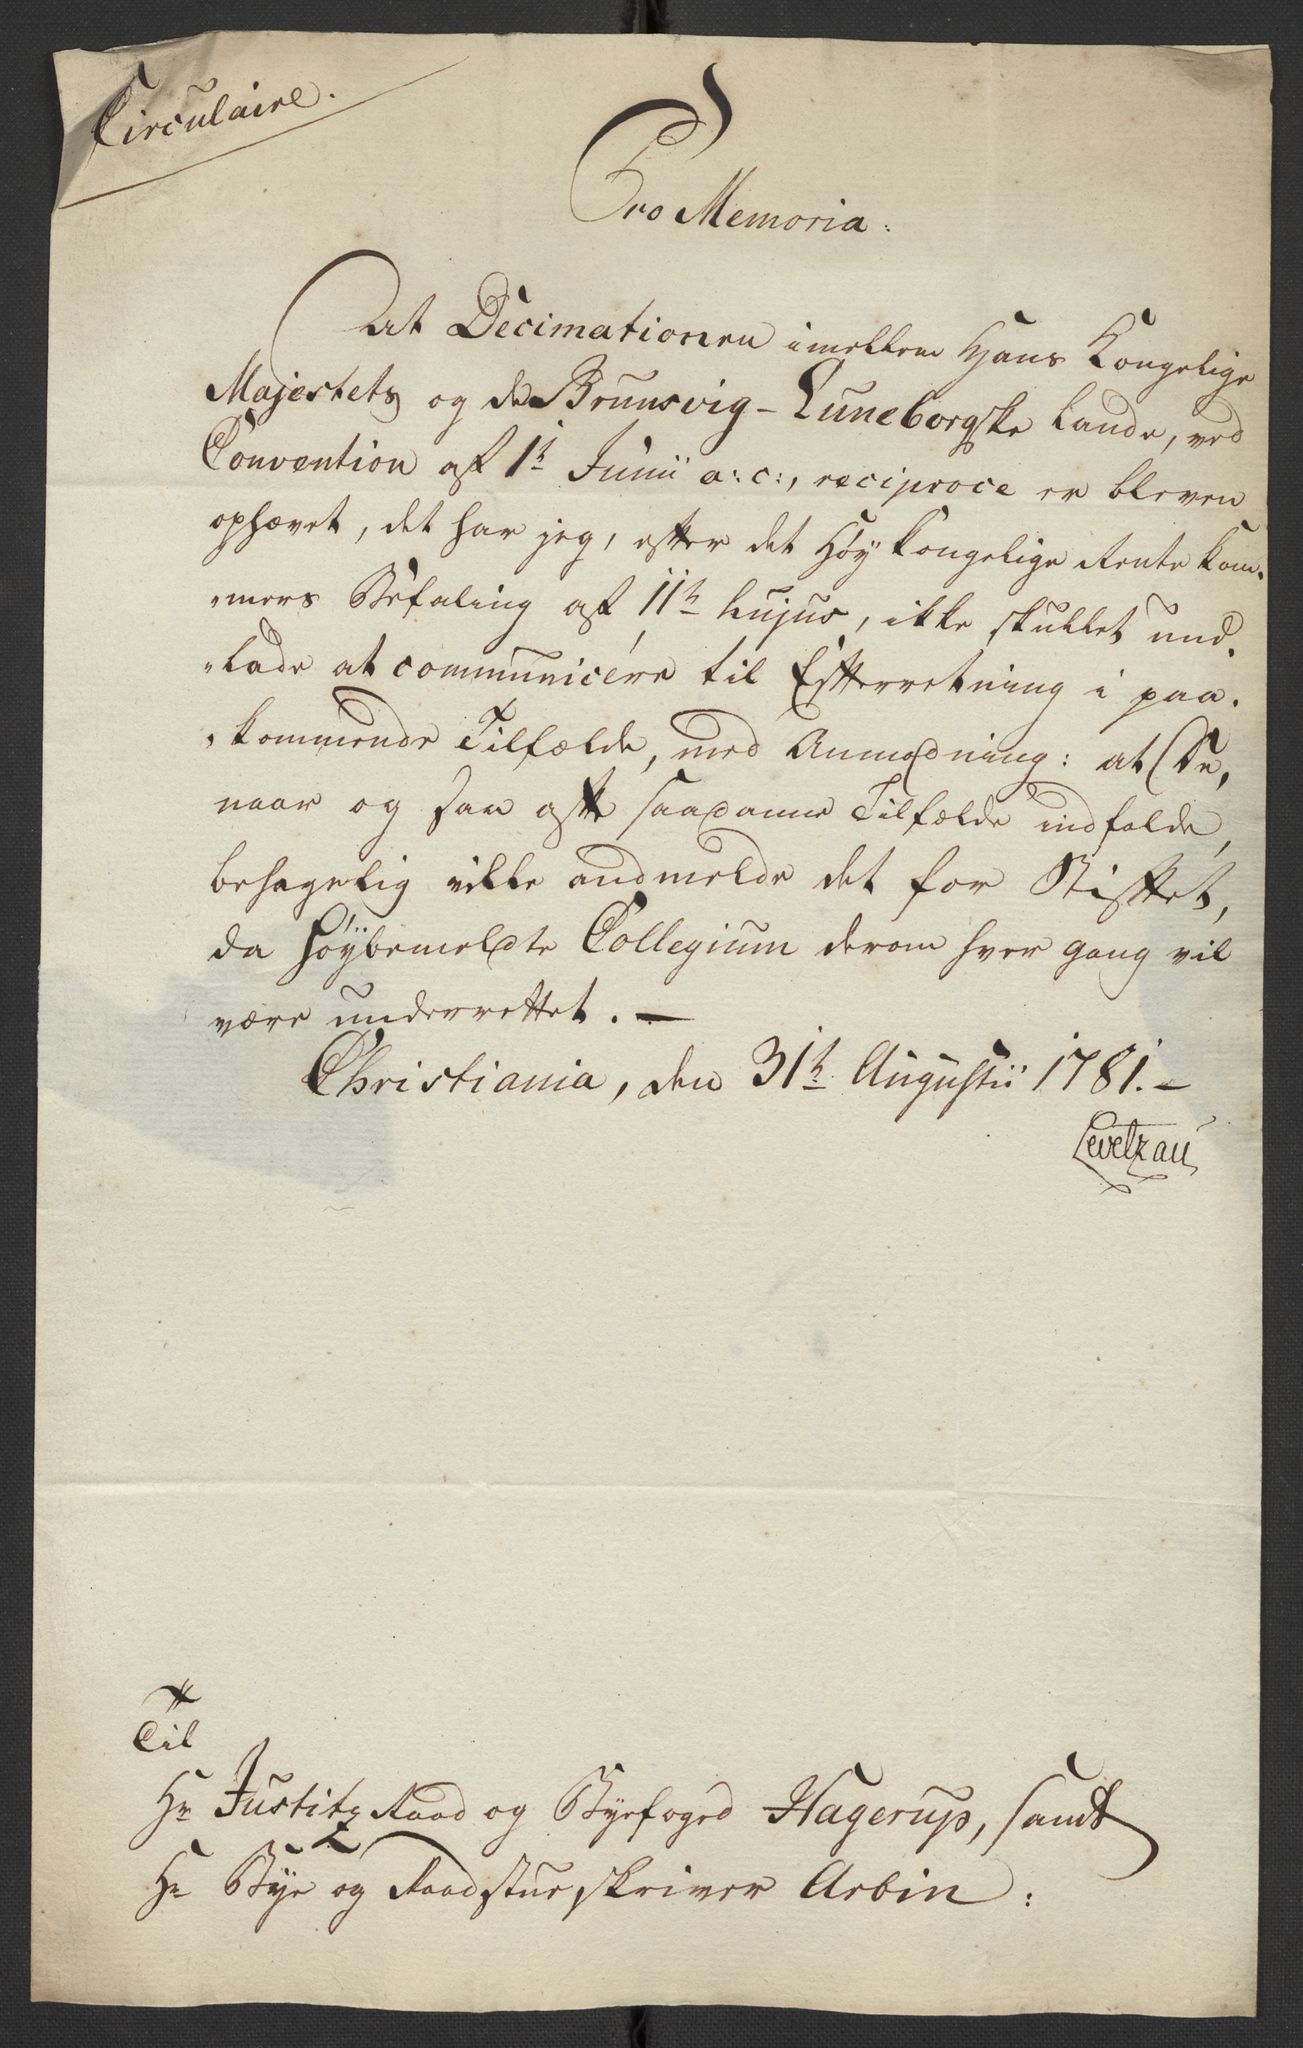 Circulaire.
Pro Memoria:
At Decimationen imellem Hans Kongelige
Majestets og de Brunsvig-Luneborgske Lande, ved
Convention af 1t Junii a: c:, reciproce er bleven
ophævet, det har jeg, efter det Høÿ Kongelige Rente Kam-
-mers Befaling af 11te hujus, ikke skullet und-
-lade at communicére til Efterretning i paa-
-kommende Tilfælde, med Anmodning: at De,
naar og saa ofte saadanne Tilfælde indfalde,
behagelig ville andmelde det for Stiftet,
da høÿbemeldte Collegium derom hver gang vil
være underrettet. —
Christiania, den 31te Augustii 1781. —
Levetzau
Til
Hr Justitz Raad og Byefoged Hagerup, samt
Hr Bÿe og Raadstueskriver Arbin: